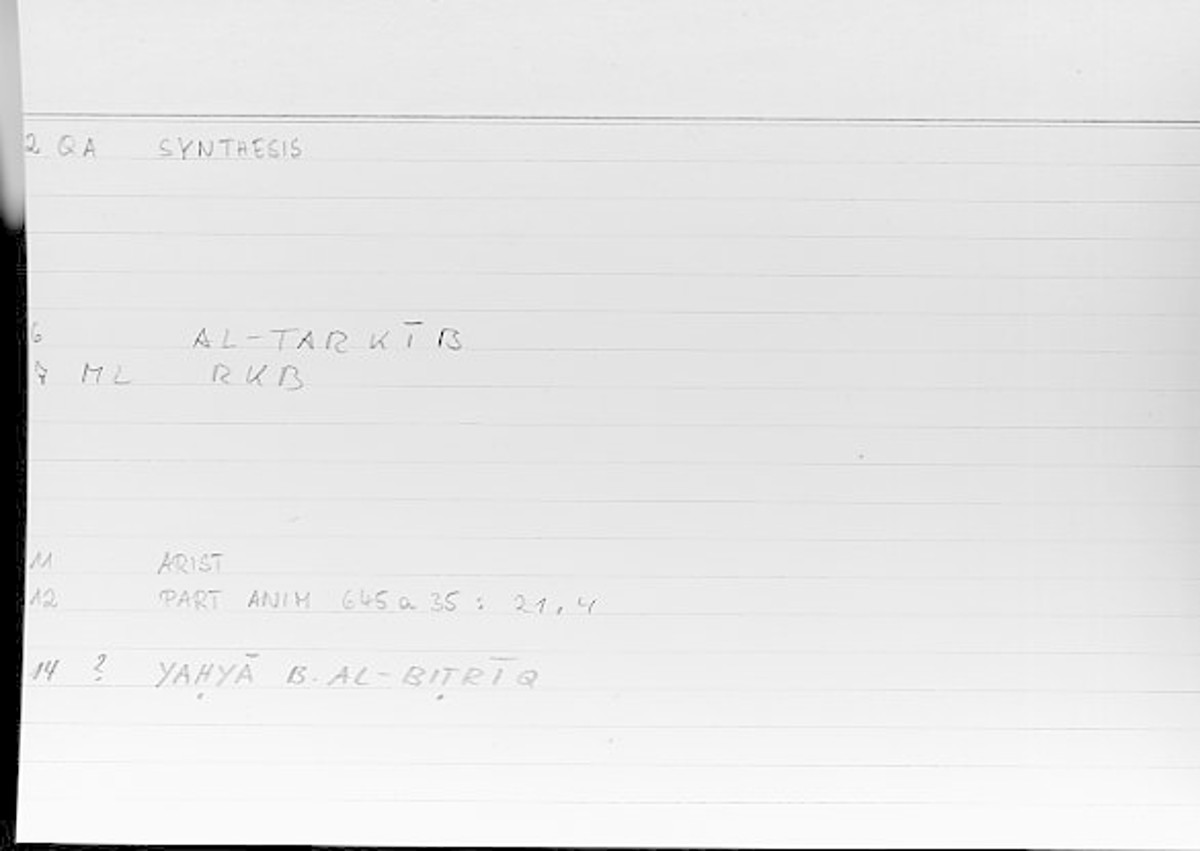 2 QA SYNTHESIS
6 AL-TARKĪB
7 ML RKB
11 ARIST
12 PART ANIM 645a 35 : 21,4
14 ? YAḤYĀ B. AL-BIṬRĪQ